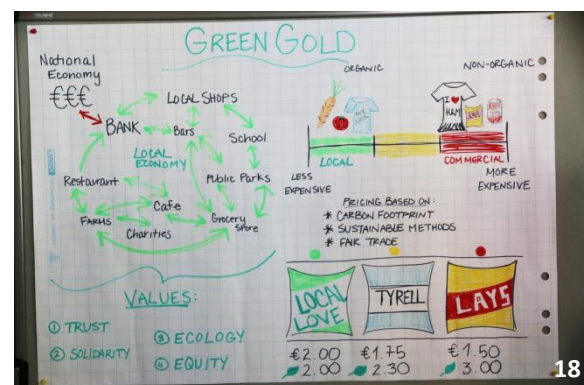 GREEN GOLD
National
Economy
€€€
BANK
LOCAL SHOPS
Bars
School
LOCAL
ECONOMY
Restaurant
Public Parks
Cafe
FARMS
Grocery
Store
Charities
VALUES:
① TRUST
② SOLIDARITY
③ ECOLOGY
④ EQUITY
ORGANIC
NON-ORGANIC
I ♥
H&M
LOCAL
COMMERCIAL
LESS
EXPENSIVE
MORE
EXPENSIVE
PRICING BASED ON:
* CARBON FOOTPRINT
* SUSTAINABLE METHODS
* FAIR TRADE
LOCAL
LOVE
TYRELL
LAYS
€2.00 €1.75 €1.50
2.00 2.30 3.00
18